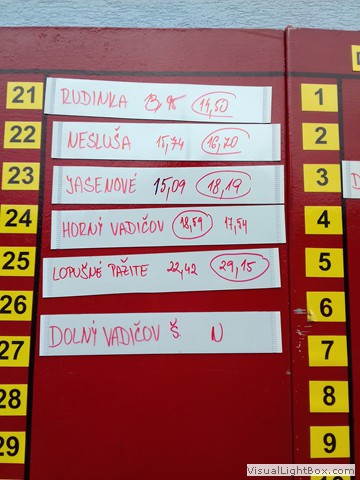 21 RUDINKA 14,50 1
22 NESLUŠA 15,74 16,70 2
23 JASENOVÉ 15,09 18,19 3
24 HORNÝ VADIČOV 18,59 17,54 4
25 LOPUŠNÉ PAŽITE 22,42 29,15 5
26 6
27 DOLNÝ VADIČOV Š N 7
28 8
29 9
www.VisualLightBox.com